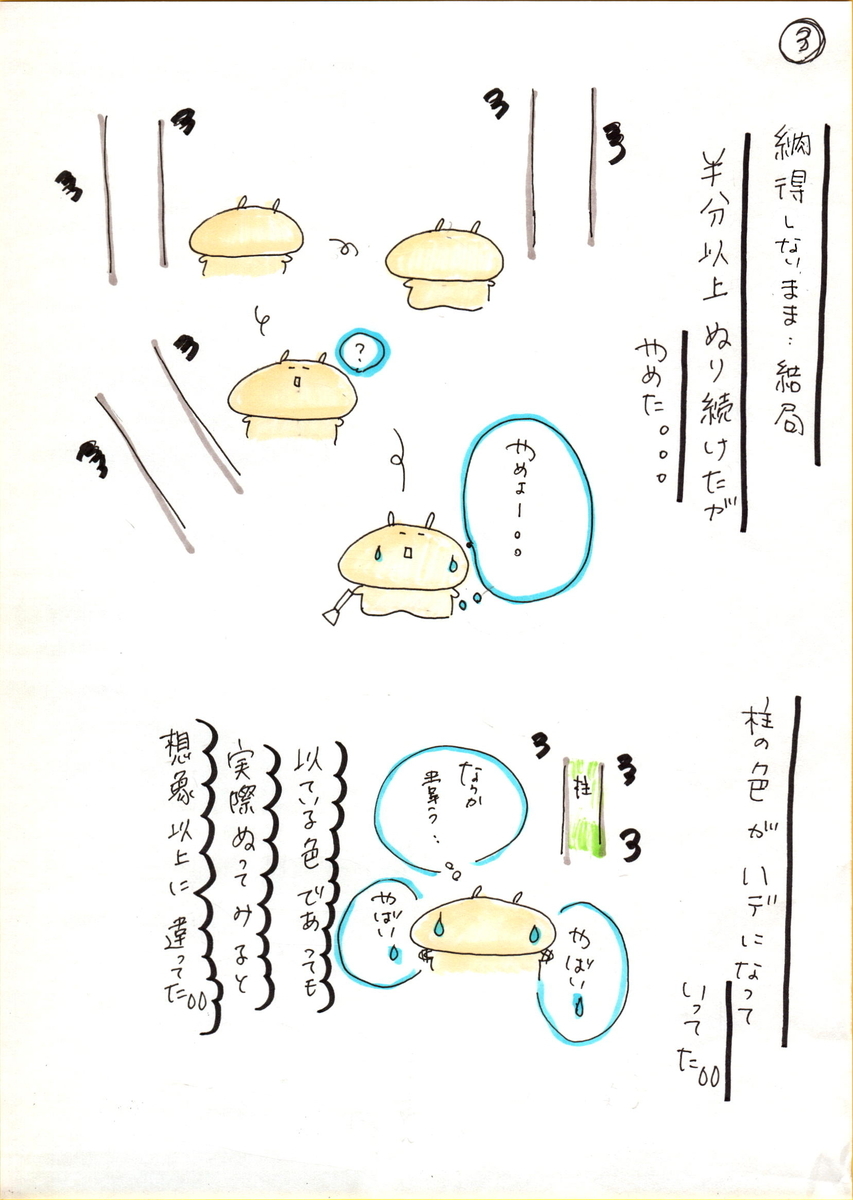 3
納得しないまま…結局
半分以上ぬり続けたが
やめた。。。
?
やめよー。。
柱の色がハデになって
いってた00
柱
なんか
違う…
やばい
やばい
以ている色であっても
実際ぬってみると
想象以上に違ってた00